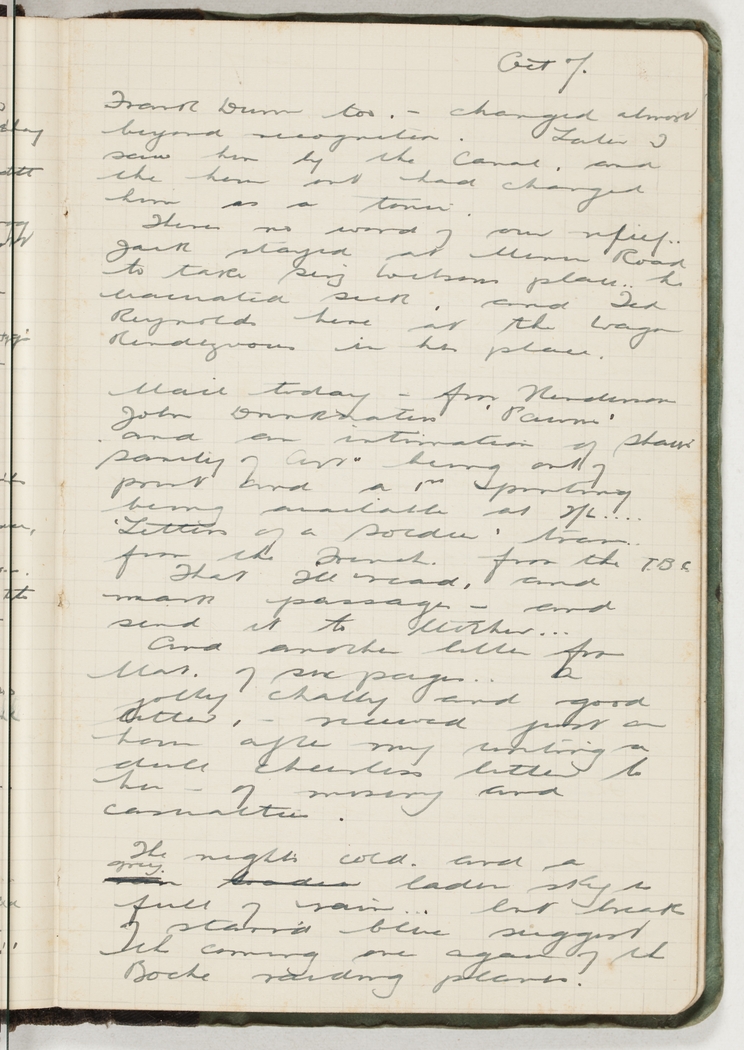 Oct 7.
Frank Dunn too. – changed almost
beyond recognition. Later I
saw him by the Canal, and
the him out had changed
him as a tonic.
There no word of our relief..
Jack stayed at Menin Road
to take Serg Wilsons place.. he
evacuated sick, and Ted
Reynolds here at the Wagon
Rendezvous in his place.
Mail today – from Henderson
John Drinkwaters 'Pawns'
and an intimation of Shaws
Sanity of Art" being out of
print and a 1st printing
being available at 2/6....
'Letters of a Soldier' trans..
from the French. from the T.B.C.
That I'll read, and
mark passages – and
send it to Mother...
And another letter from
Mar. of six pages.. a
jolly chatty and good
letter, – received just an
hour after my writing a
dull cheerless letter to
her – of misery and
casualties.
The night's cold. and a
grey laden sky is
full of rain... but breaks
of starr'd blue suggest
the coming over again of the
Boche raiding planes.